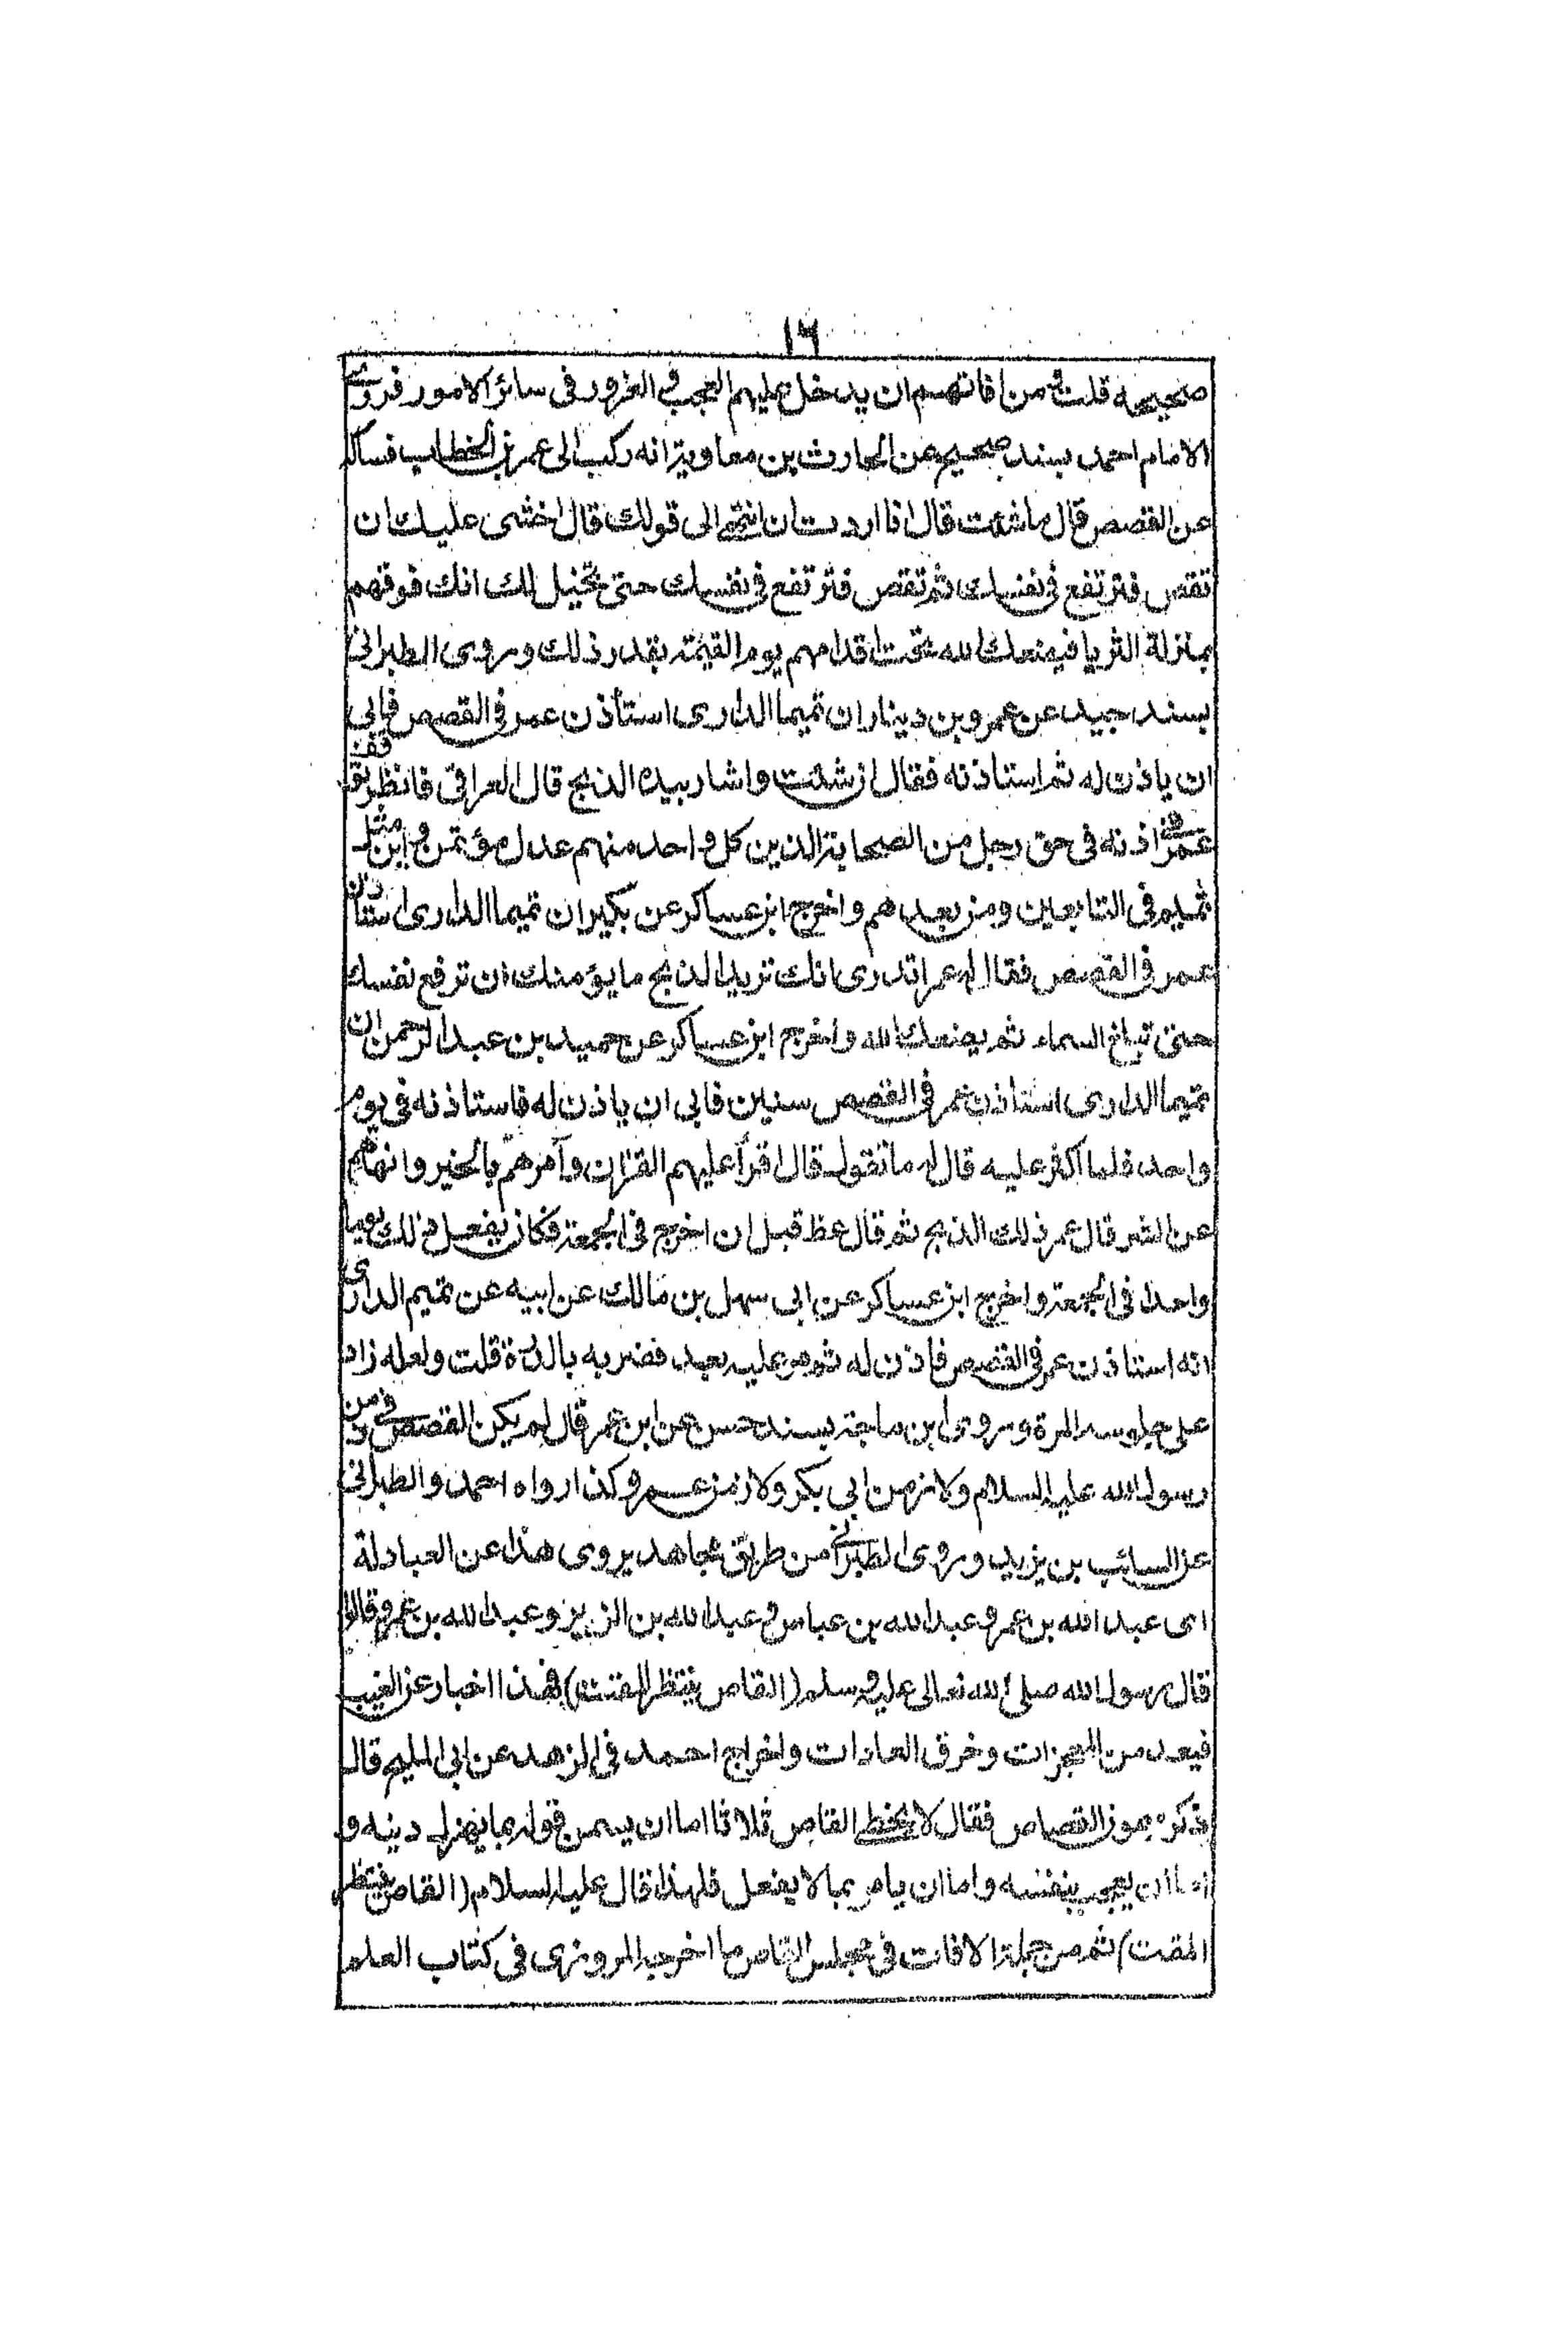 ١٦
صحيحه قلت ثم من افاتهم ان يدخل عليهم العجب و الغرور فى سائر الامور فروى
الامام احمد بسند صحيح عن الحارث بن معاوية انه ركب الى عمر بن الخطاب فساله
عن القصص قال ما شئت قال انا اردت ان انتهى الى قولك قال اخشى عليك ان
تقص فترتفع فى نفسك ثم تقص فترتفع فى نفسك حتى يخيل لك انك فوقهم
بمنزلة الثريا فيضعك الله تحت اقدامهم يوم القيمة بقدر ذلك وروى الطبرانى
بسند جيد عن عمرو بن دينار ان تميما الدارى استأذن عمر فى القصص فابى
ان ياذن له ثم استاذنه فقال ان شئت واشار بيده الذبح قال العراقى فانظر توقف
عمر فى اذنه فى حق رجل من الصحابة الذين كل واحد منهم عدل مؤتمن و اين مثل
تميم فى التابعين ومن بعدهم واخرج ابن عساكر عن بكير ان تميما الدارى استاذن
عمر فى القصص فقال له عمر اتدرى انك تريد الذبح ما يؤمنك ان ترفع نفسك
حتى تبلغ السماء ثم يضعك الله واخرج ابن عساكر عن حميد بن عبد الرحمن ان
تميما الدارى استاذن عمر فى القصص سنين فابى ان ياذن له فاستاذنه فى يوم
واحد فلما اكثر عليه قال له ما تقول قال اقرأ عليهم القرآن وآمرهم بالخير وانهاهم
عن الشر قال عمر ذلك الذبح ثم قال عظ قبل ان اخرج فى الجمعة فكان يفعل ذلك يوما
واحدا فى الجمعة واخرج ابن عساكر عن ابى سهل بن مالك عن ابيه عن تميم الدارى
انه استاذن عمر فى القصص فاذن له ثم مر عليه بعد فضربه بالدرة قلت ولعله زاد
على جلوسه المرة وروى ابن ماجة بسند حسن عن ابن عمر قال لم يكن القصص فى زمن
رسول الله عليه السلام ولا زمن ابى بكر ولا زمن عمر وكذا رواه احمد والطبرانى
عن السائب بن يزيد وروى الطبرانى من طريق مجاهد يروى هذا عن العبادلة
اى عبد الله بن عمر و عبد الله بن عباس و عبد الله بن الزبير و عبد الله بن عمرو قالوا
قال رسول الله صلى الله تعالى عليه وسلم (القاص ينتظر المقت) فهذا اخبار عن الغيب
فيعد من المعجزات وخرق العادات واخراج احمد فى الزهد عن ابى المليح قال
ذكر ميمون القصاص فقال لا يخطى القاص ثلاثا اما ان يسمن قوله بما يهزل دينه و
اما ان يعجب بنفسه واما ان يامر بما لا يفعل فلهذا قال عليه السلام (القاص ينتظر
المقت) ثم من جملة الافات فى مجلس القاص ما اخرجه المروزى فى كتاب العلم